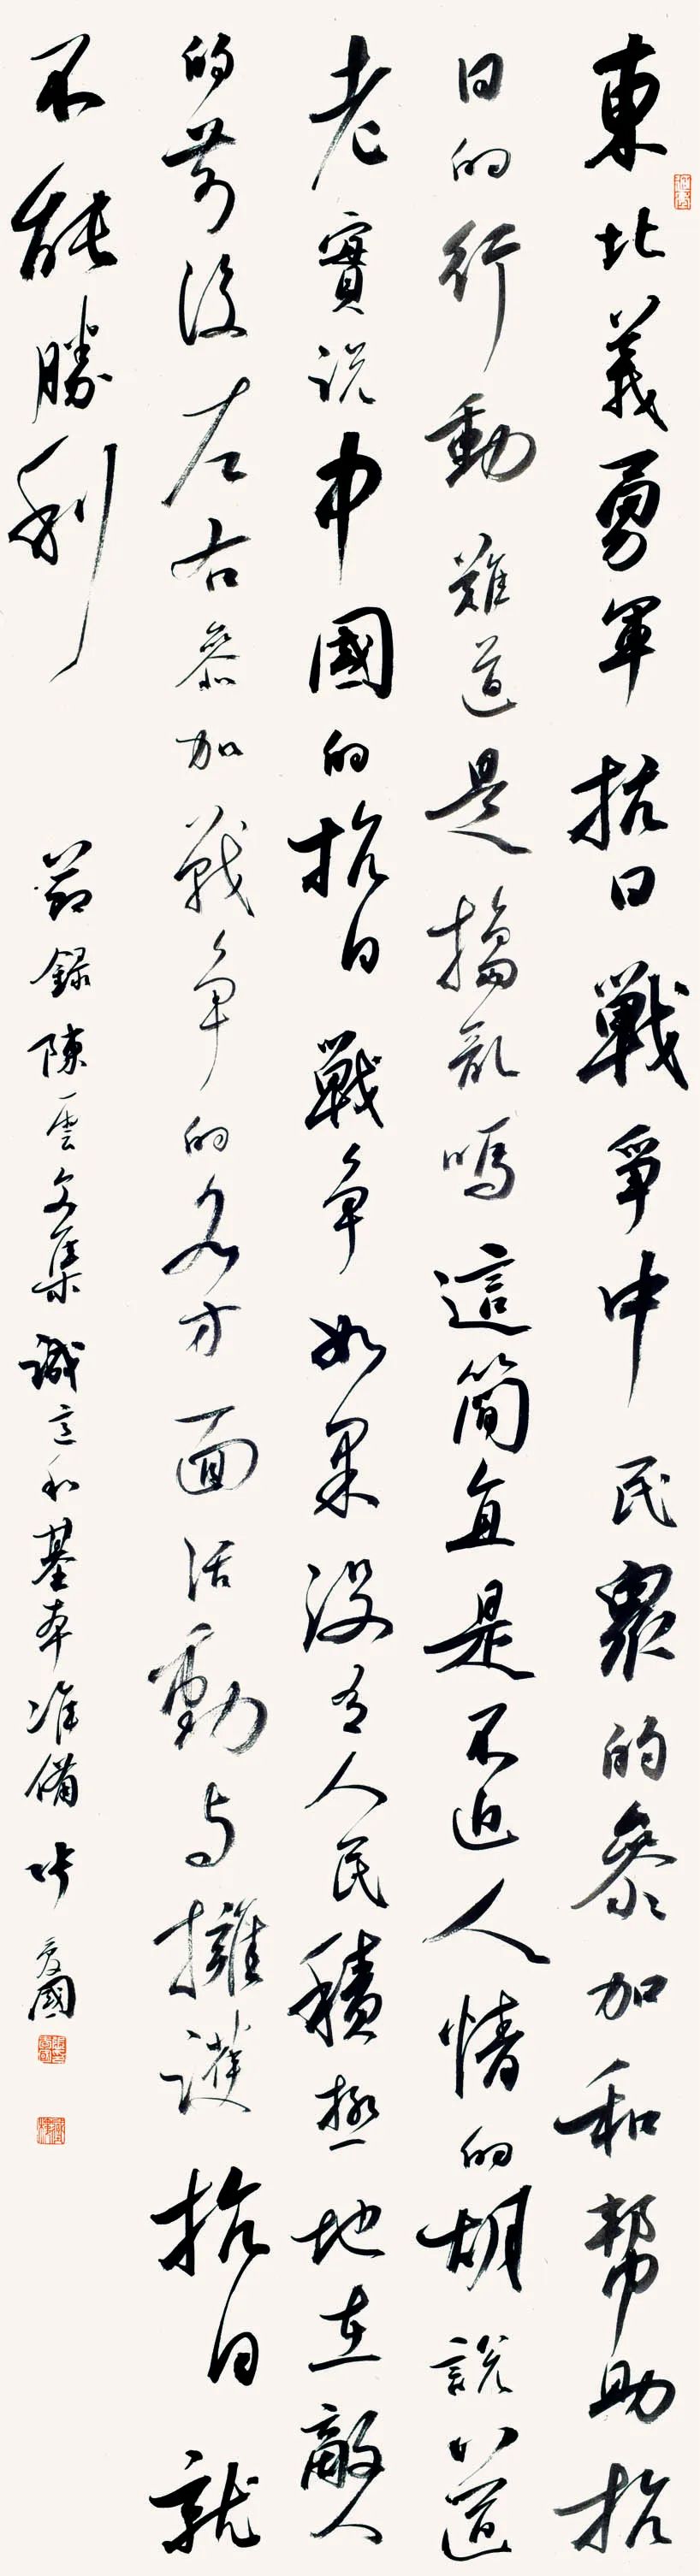 東北義勇軍抗日戰爭中民衆的參加和幫助抗
日的行動難道是搗亂嗎這簡直是不近人情的胡說八道
老實说中國的抗日戰争如果没有人民積極地在敵人
的前後左右參加戰争的各方面活動与擁護抗日就
不能勝利
節録陳雲文集 基本准備 愛國